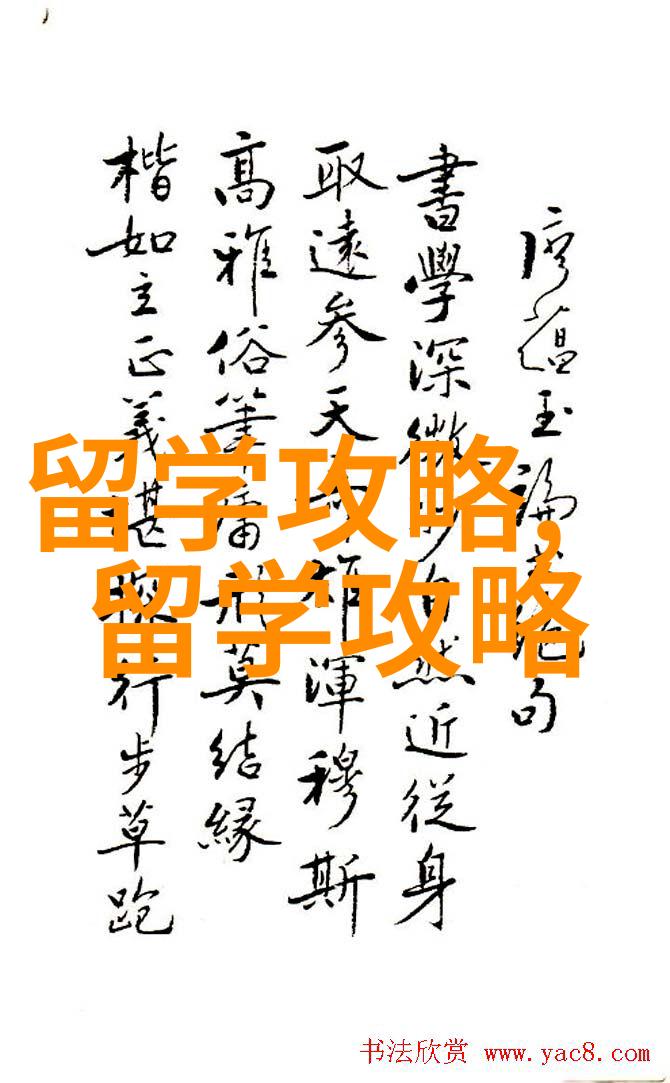 廖蘊玉論書絕句
書學深微妙自然近從身
取遠參天雄渾穆斯
高雅俗筆庸形莫結緣
楷如立正義堪行步草跑
留学攻略,
留学攻略
书法欣赏 www.yac8.com